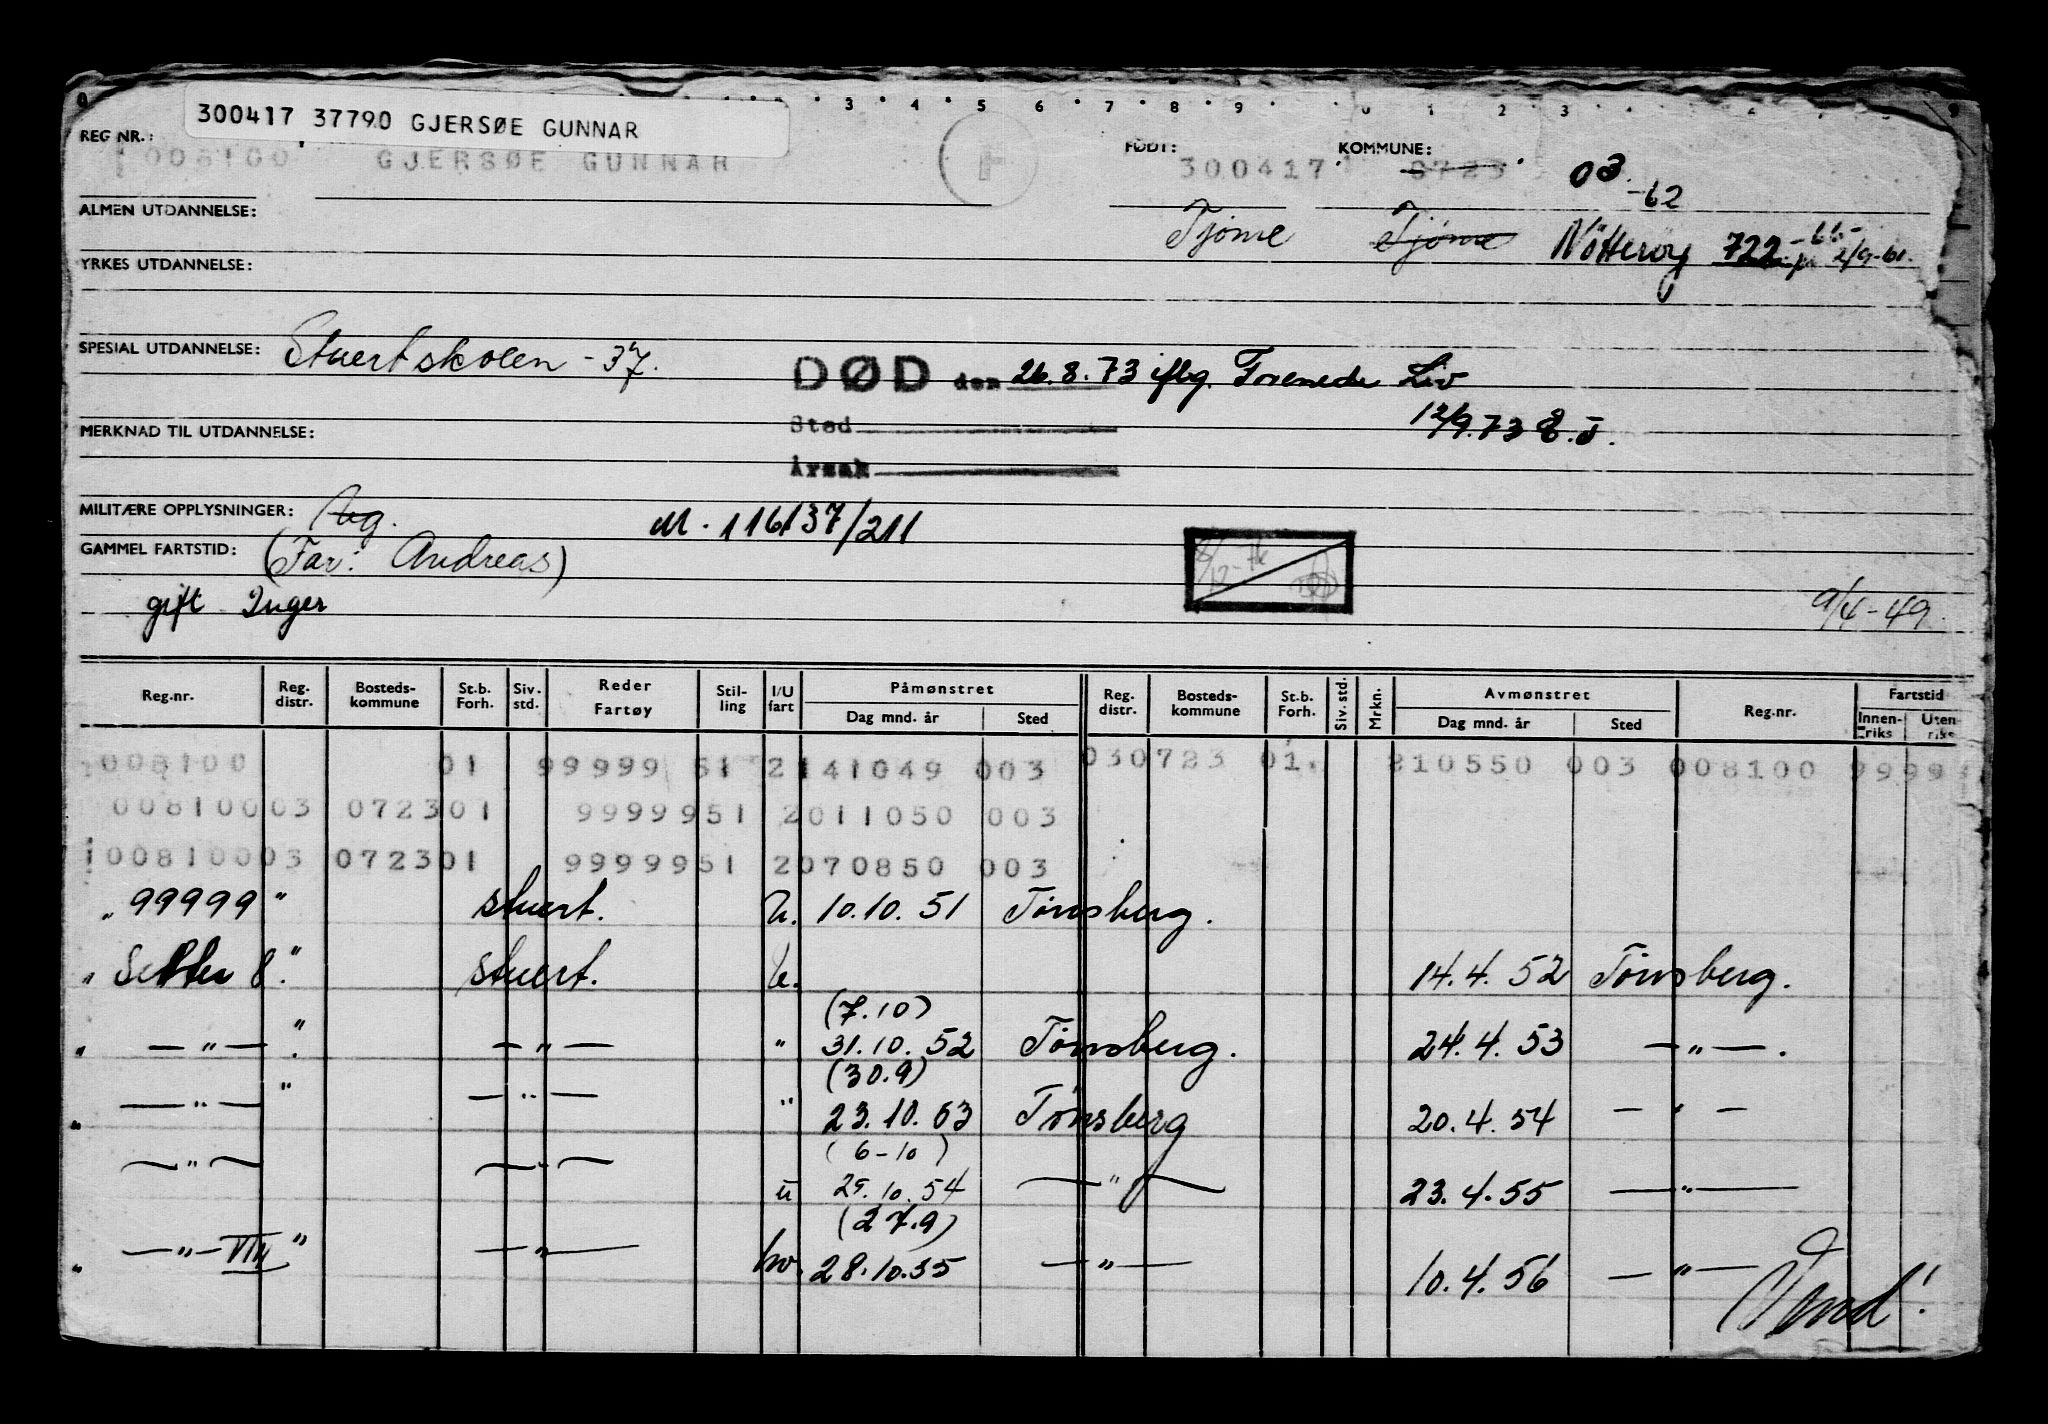 0 3 4 5 6 7 8 9 0 1 2 3
300417 37790 GJERSØE GUNNAR
REG NR.: FØDT: KOMMUNE:
1008100 GJERSØE GUNNAR H 300417 0723 03 -62
ALMEN UTDANNELSE: Tjøme Tjøme Nötteröy 722 2/9-61.
YRKES UTDANNELSE:
SPESIAL UTDANNELSE: Stuertskolen -37. DØD den 26.8.73 iflg. Forenede Liv
Sted 12/9.73
MERKNAD TIL UTDANNELSE:
Årsak
MILITÆRE OPPLYSNINGER: M. 116137/211
GAMMEL FARTSTID: (Far: Andreas)
gift Inger 9/4-49
Reg.nr. Reg. distr. Bosteds-kommune St.b. Forh. Siv. std. Reder Fartøy Stil-ling I/U fart Påmønstret Dag mnd. år Sted Reg. distr. Bosteds-kommune St.b. Forh. Siv. std. Mrkn. Avmønstret Dag mnd. år Sted Reg.nr. Fartstid Innen-riks Uten-riks
1008100 01 99999 51 2 141049 003 030723 01. 210550 003 008100 9999
00810003 072301 9999951 2011050 003
100810003 072301 9999951 2070850 003
" 99999 " stuert. U. 10.10.51 Tønsberg.
" " stuert. U. 14.4.52 Tønsberg.
(7.10)
" —"— " —"— " 31.10.52 Tønsberg. 24.4.53 —"—.
(30.9)
" —"— " —"— " 23.10.53 Tønsberg 20.4.54 —"—
(6-10)
—"— —"— u 25.10.54 —"— 23.4.55 —"—
(27.9)
" —"— VIII " —"— hv. 28.10.55 —"— 10.4.56 —"—
Vend!